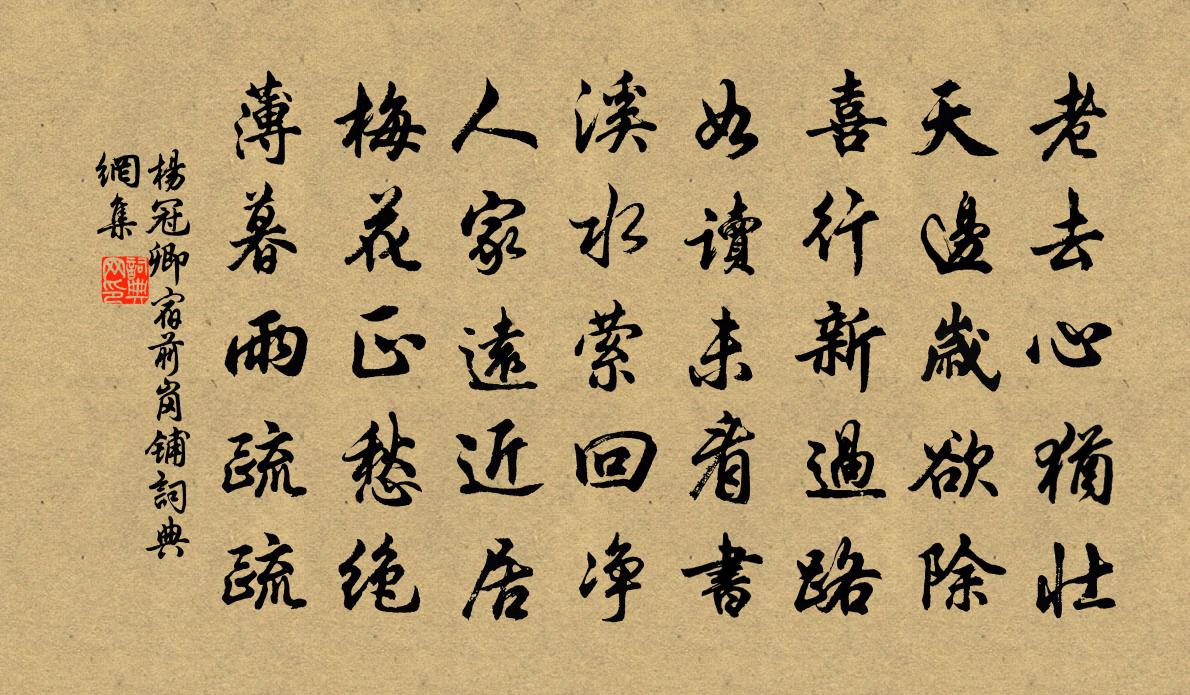 老去心猶壯
天邊歲欲除
喜行新過路
如讀未看書
溪水縈回淨
人家遠近居
梅花正愁絕
薄暮雨疏疏
楊冠卿宿前崗鋪詞典
網集
詞典
网印